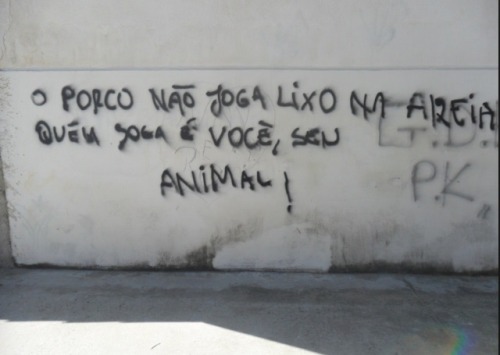 O PORCO NÃO JOGA LIXO NA AREIA
QUÉM JOGA É VOCÊ, SEU
ANIMAL!
P.K